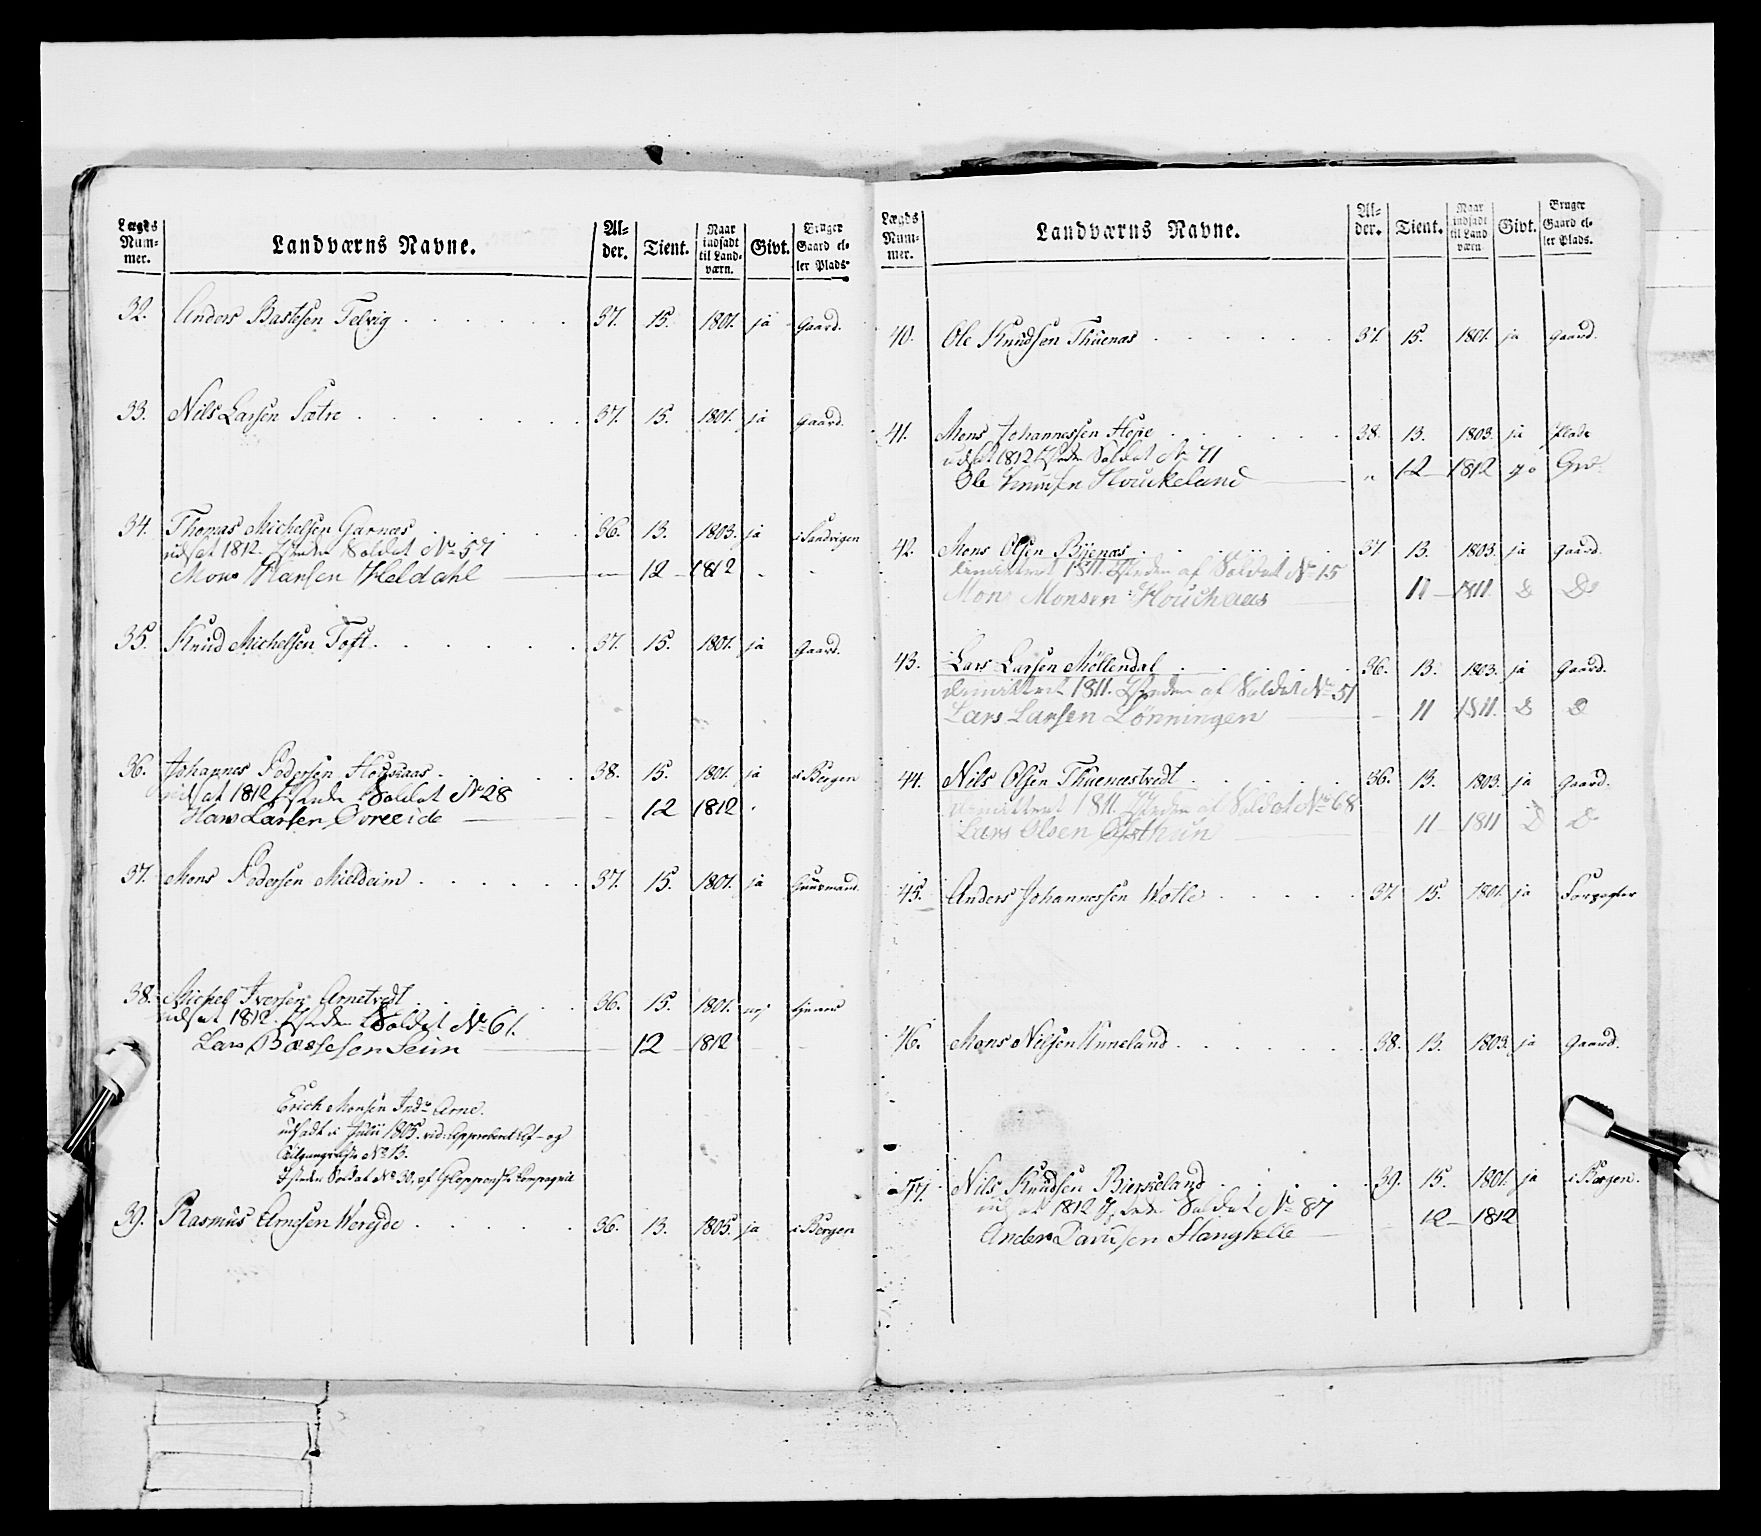 Lægds Num- mer. Landværns Navne. Al- der. Tient. Naar indsadt til Land- værn. Givt. Bruger Gaard el- ler Plads.
32. Anders Bastesen Telvig 37. 15. 1801. ja Gaard.
33. Nils Larsen Sætre 37. 15. 1801. ja Gaard.
34. Thomas Michelsen Garnæs 36. 13. 1803. ja i Sandvigen
udsat 1812. Soldat No 57
Mons Hansen Heldahl 12 1812
35. Knud Michelsen Toft 37. 15. 1801. ja Gaard.
36. Johannes Pedersen 38. 15. 1801. ja i Bergen
udsat 1812 Soldat No 28
Hans Larsen Øvreeide 12 1812
37. Mons Pedersen Mieldeim 37. 15. 1801. ja Huusmand.
38. Michel Iversen Arnetvedt 36. 15. 1801. nej tjener
udsat 1812. Soldat No 61.
Lars Seim 12 1812
Erich Monsen Indre Arne.
udsadt i Julii 1805. Af- og
No 13.
Soldat No 30. af Compagnie
39. Rasmus Arnesen 36. 13. 1805. ja i Bergen
Lægds Num- mer. Landværns Navne. Al- der. Tient. Naar indsadt til Land værn Givt. Bruger Gaard el- ler Plads.
40. Ole Knudsen Thuenæs 37. 15. 1801. ja Gaard.
41. Mons Johannessen 38. 13. 1803. ja Plads
udsat 1812 Soldat No 71
Ole Knudsen Houckeland 12 1812
42. Mons Olsen 37 13. 1803. ja Gaard.
dimittert 1811. af Soldat No 15
Mons Monsen 11 1811. Do Do
43. Lars Larsen Møllendal 36. 13. 1803. ja Gaard.
dimittert 1811. af Soldat No 51
Lars Larsen Lønningen 11 1811. Do Do
44. Nils Olsen Thuenæstvedt 36. 13. 1803. ja Gaard.
dimittert 1811. af Soldat No 68
Lars Olsen 11 1811 Do Do
45. Anders Johannessen Wolle 37. 15. 1801. ja
46. Mons Nilsen Unneland 38. 13. 1803. ja Gaard.
47. Nils Knudsen Birkeland 39. 15. 1801. ja i Bergen.
udsat 1812 Soldat No 87
Anders Stanghelle 12 1812